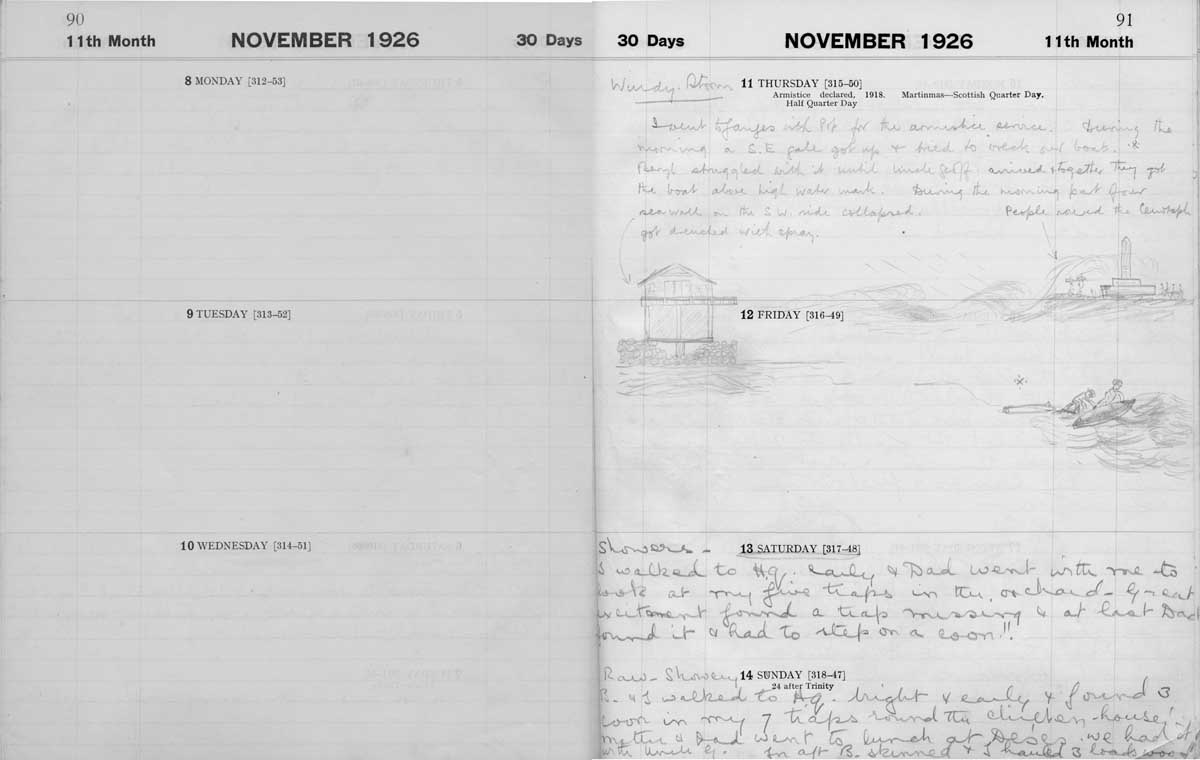 90
11th Month NOVEMBER 1926 30 Days
8 MONDAY [312–53]
9 TUESDAY [313–52]
10 WEDNESDAY [314–51]
91
30 Days NOVEMBER 1926 11th Month
Windy. Storm 11 THURSDAY [315–50]
Armistice declared, 1918. Martinmas—Scottish Quarter Day.
Half Quarter Day
I went to Ganges with for the armistice service. During the
morning a S.E. gale got up & tried to wreck our boat. *
Beryl struggled with it until Uncle Geoff arrived & together they got
the boat above high water mark. During the morning part of our
sea wall on the S.W. side collapsed. People round the Cenotaph
got drenched with spray.
12 FRIDAY [316–49]
*
Showers – 13 SATURDAY [317–48]
I walked to Hq. early & Dad went with me to
look at my five traps in the orchard – Great
excitement found a trap missing & at last Dad
found it & had to step on a coon!!
Raw – Showery 14 SUNDAY [318–47]
24 after Trinity
B. & I walked to Hq. bright & early & found 3
coon in my 7 traps round the chicken-house!
Mother & Dad went to lunch at we had it
with Uncle G. In aft B. skinned & I hauled 3 loads wood